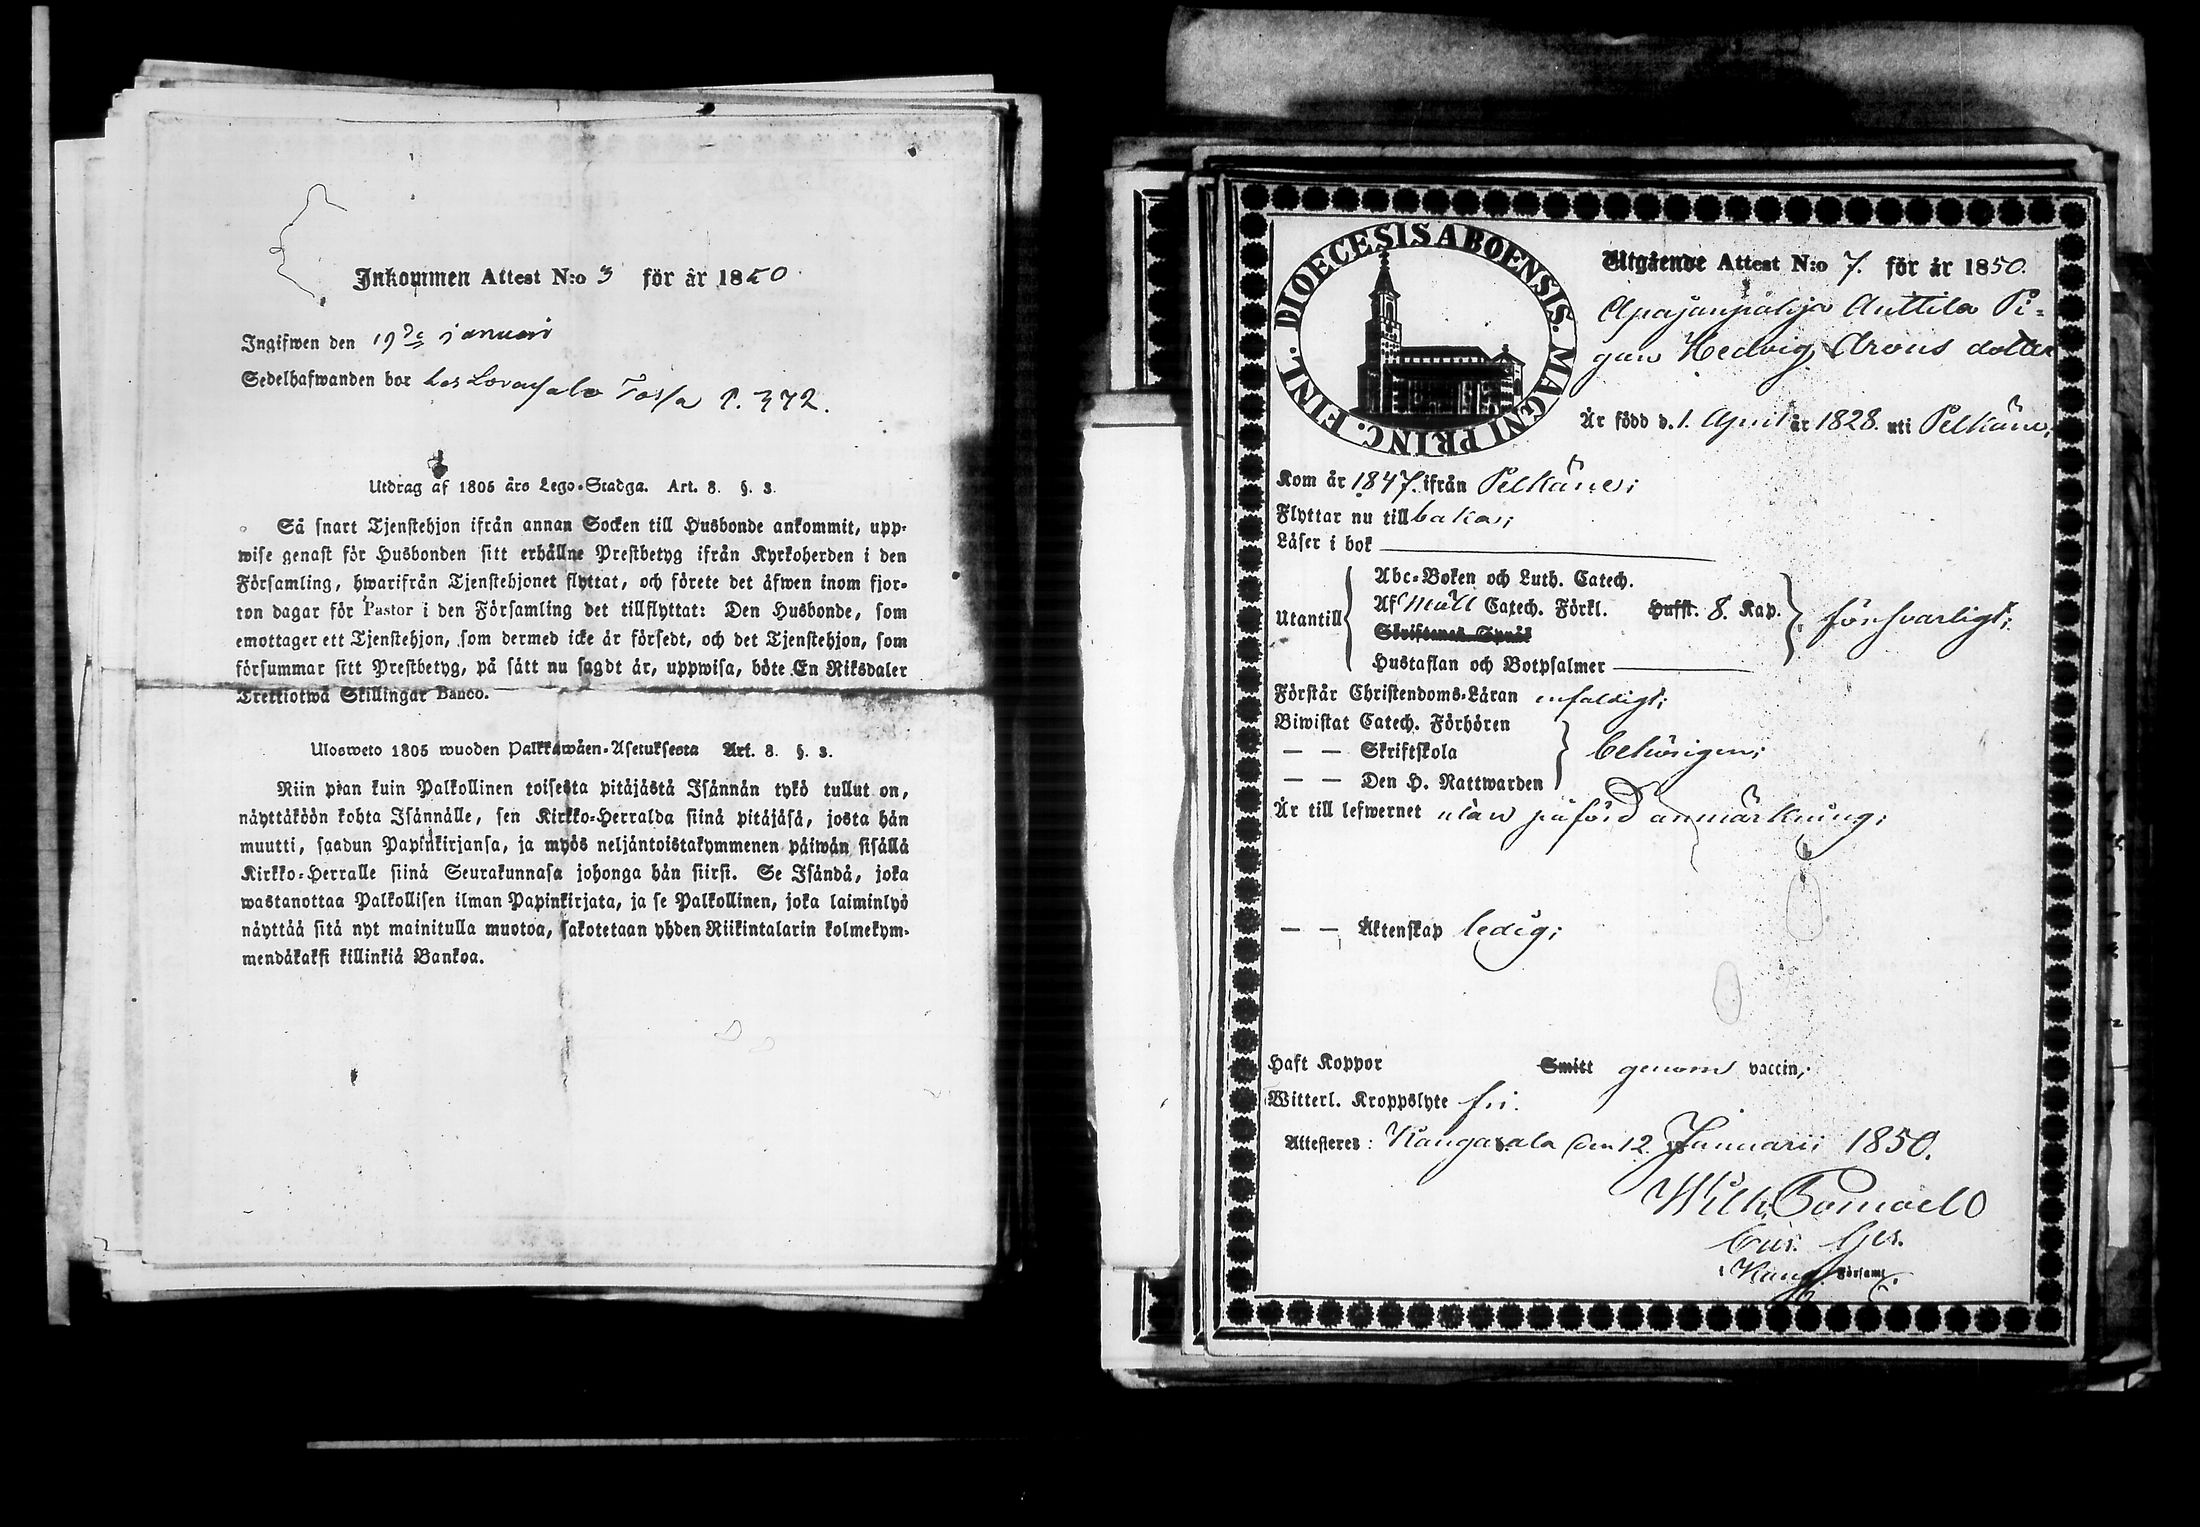 Inkommen Attest N:o 3 för år 1850.
Ingifwen den 19de januari
Sedelhafwanden bor hos P. 372.
Utdrag af 1805 års Lego-Stadga. Art. 8. §. 3.
Så snart Tjenstehjon ifrån annan Socken till Husbonde ankommit, upp-
wise genast för Husbonden sitt erhållne Prestbetyg ifrån Kyrkoherden i den
Församling, hwarifrån Tjenstehjonet flyttat, och förete det äfwen inom fjor-
ton dagar för Pastor i den Församling det tillflyttat: Den Husbonde, som
emottager ett Tjenstehjon, som dermed icke är försedt, och det Tjenstehjon, som
försummar sitt Prestbetyg, på sätt nu sagdt är, uppwisa, böte En Riksdaler
Trettiotwå Skillingar Banco.
Ulosweto 1805 wuoden Palkkawäen-Asetuksesta Art. 8. §. 3.
Niin pian kuin Palkollinen toisesta pitäjästä Isännän tykö tullut on,
näyttäköön kohta Isännälle, sen Kirkko-Herralda siinä pitäjäsä, josta hän
muutti, saadun Papinkirjansa, ja myös neljäntoistakymmenen päiwän sisällä
Kirkko-Herralle siinä Seurakunnasa johonga hän siirsi. Se Isändä, joka
wastanottaa Palkollisen ilman Papinkirjata, ja se Palkollinen, joka laiminlyö
näyttää sitä nyt mainitulla muotoa, sakotetaan yhden Riikintalarin kolmekym-
mendäkaksi killinkiä Bankoa.
DIOECESIS ABOENSIS. MAGNI PRINC. FINL.
Utgående Attest N:o 7. för år 1850.
Apajanpohja Anttila Pi-
gan Hedvig Arons dotter
Är född d. 1. April år 1828. uti Pelkäne;
Kom år 1847. ifrån Pelkäne;
Flyttar nu tillbakas;
Läser i bok
Abc-Boken och Luth. Catech.
Utantill Af Catech. Förkl. Hufst. 8. Kap. försvarligt;
Skriftenes Språk
Hustaflan och Botpsalmer
Förstår Christendoms-Läran enfaldigt;
Biwistat Catech. Förhören
— — Skriftskola behörigen;
— — Den H. Nattwarden
Är till lefwernet utan påförd anmärkning;
— — Äktenskap ledig;
Haft Koppor Smitt genom vaccin;
Witterl. Kroppslyte fri.
Attesteres: Kangasala den 12. Januarii 1850.
Wilh.
Kang. Församl.